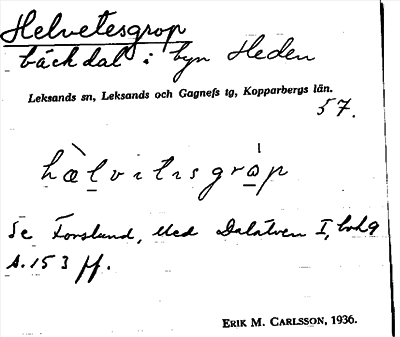 Helvetesgrop
bäckdal i byn Heden
Leksands sn, Leksands och Gagnefs tg, Kopparbergs län.
57.
hæ̀lvıtısgrá̱p
Se Forslund, Med Dalälven I, bok 9
s. 153 ff.
ERIK M. CARLSSON, 1936.